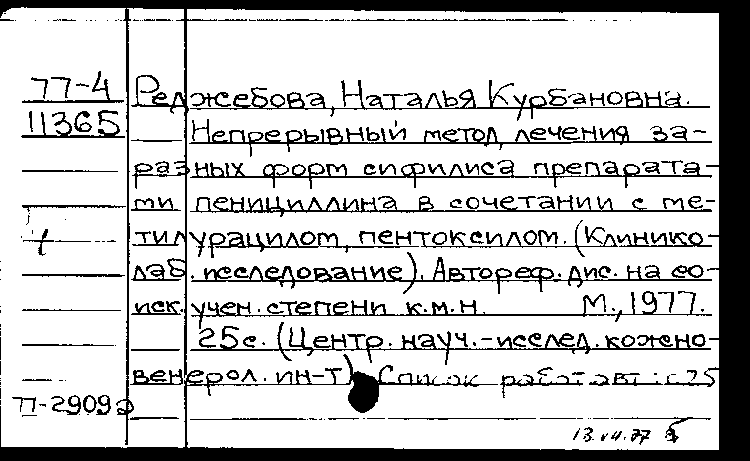 77-4 Реджебова, Наталья Курбановна.
11365 Непрерывный метод лечения за-
разных форм сифилиса препарата-
ми пенициллина в сочетании с ме-
тилурацилом, пентоксилом. (Клинико-
лаб. исследование). Автореф. дис. на со-
иск. учен. степени к.м.н. М., 1977.
25с. (Центр. науч.-исслед. кожно-
венерол. ин-т). Список работ авт.: с. 25
77-2909